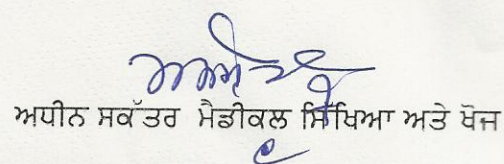 ਅਧੀਨ ਸਕੱਤਰ ਮੈਡੀਕਲ ਸਿੱਖਿਆ ਅਤੇ ਖੋਜ